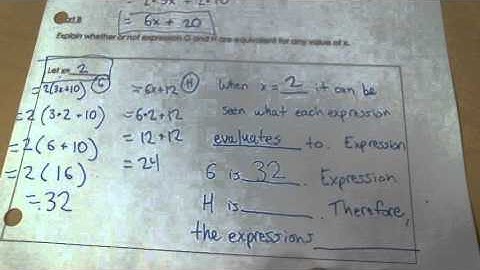 = 6x + 20
Explain whether or not expression G and H are equivalent for any value of x.
Let x= 2
=2(3x+10) G
=2(3·2+10)
=2(6+10)
=2(16)
=32
=6x+12 H
=6·2+12
=12+12
=24
When x=2 it can be
seen what each expression
evaluates to. Expression
G is 32. Expression
H is ____. Therefore,
the expressions ____